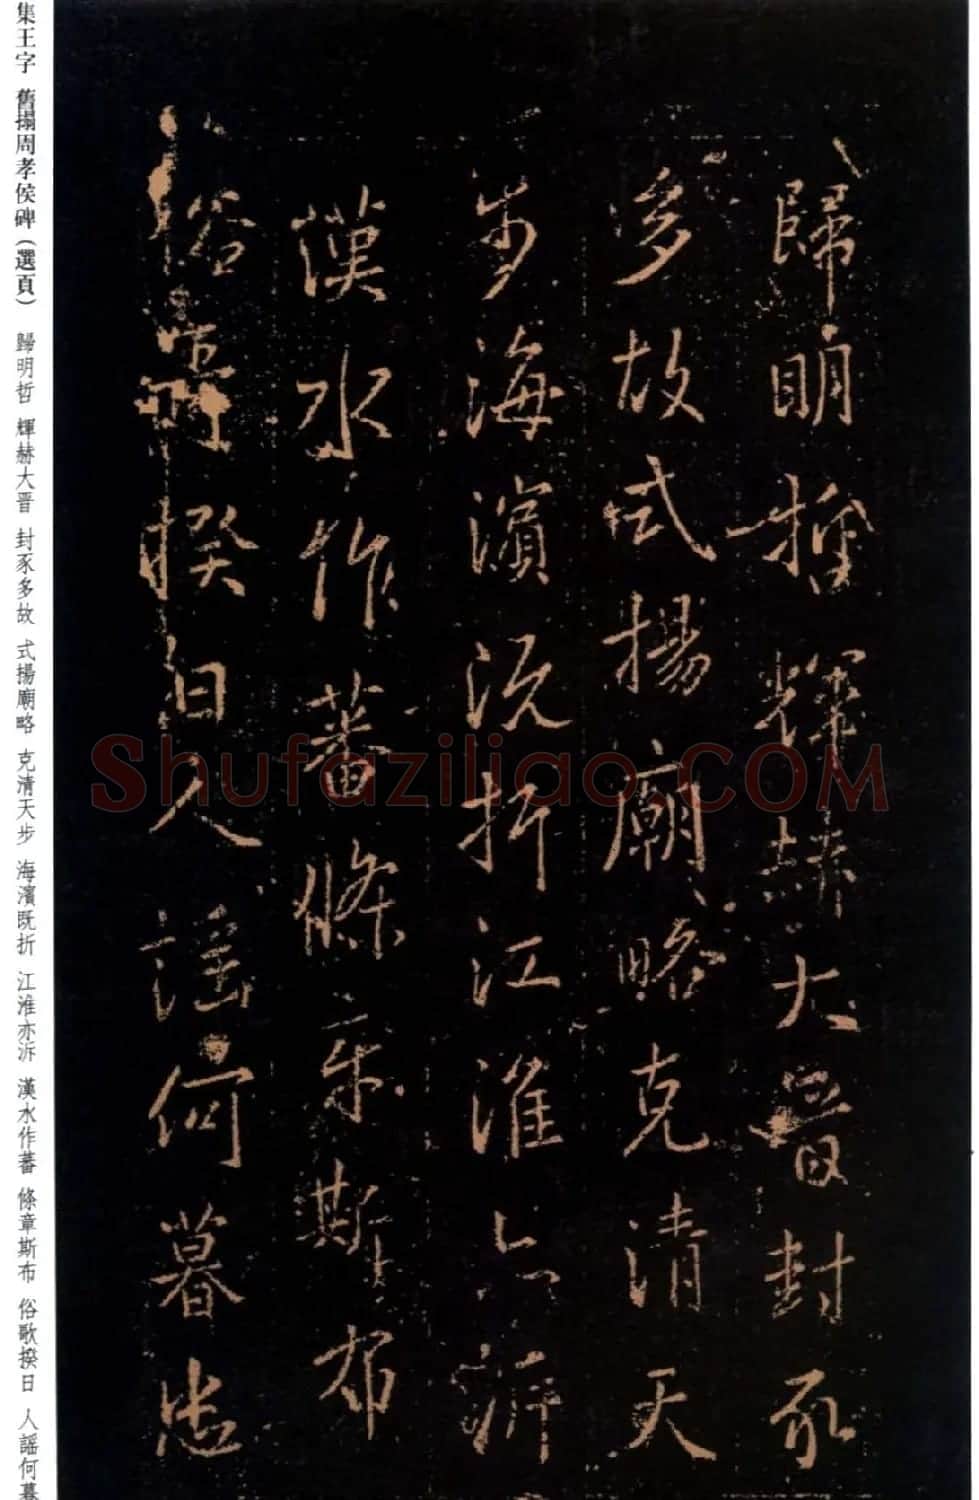 歸明哲輝赫大晉封豕
多故式揚廟略克清天
步海濱既折江淮亦泝
漢水作蕃條章斯布
俗歌揆日人謠何暮
集王字 舊搨周孝侯碑(選頁) 歸明哲 輝赫大晋 封豕多故 式揚廟略 克清天步 海濱既折 江淮亦泝 漢水作蕃 條章斯布 俗歌揆日 人謡何暮
Shufaziliao.COM